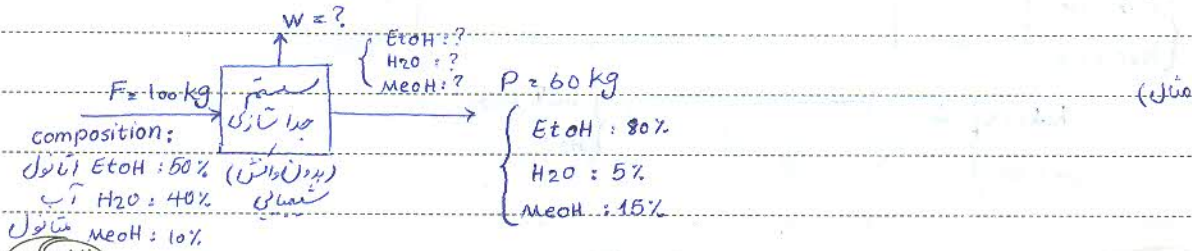 مثال)
W = ?
EtOH : ?
H2O : ?
MeOH : ?
F = 100 kg
سیستم
جداسازی
(بدون واکنش
شیمیایی)
P = 60 kg
EtOH : 80%
H2O : 5%
MeOH : 15%
composition:
اتانول EtOH : 50%
آب H2O : 40%
متانول MeOH : 10%